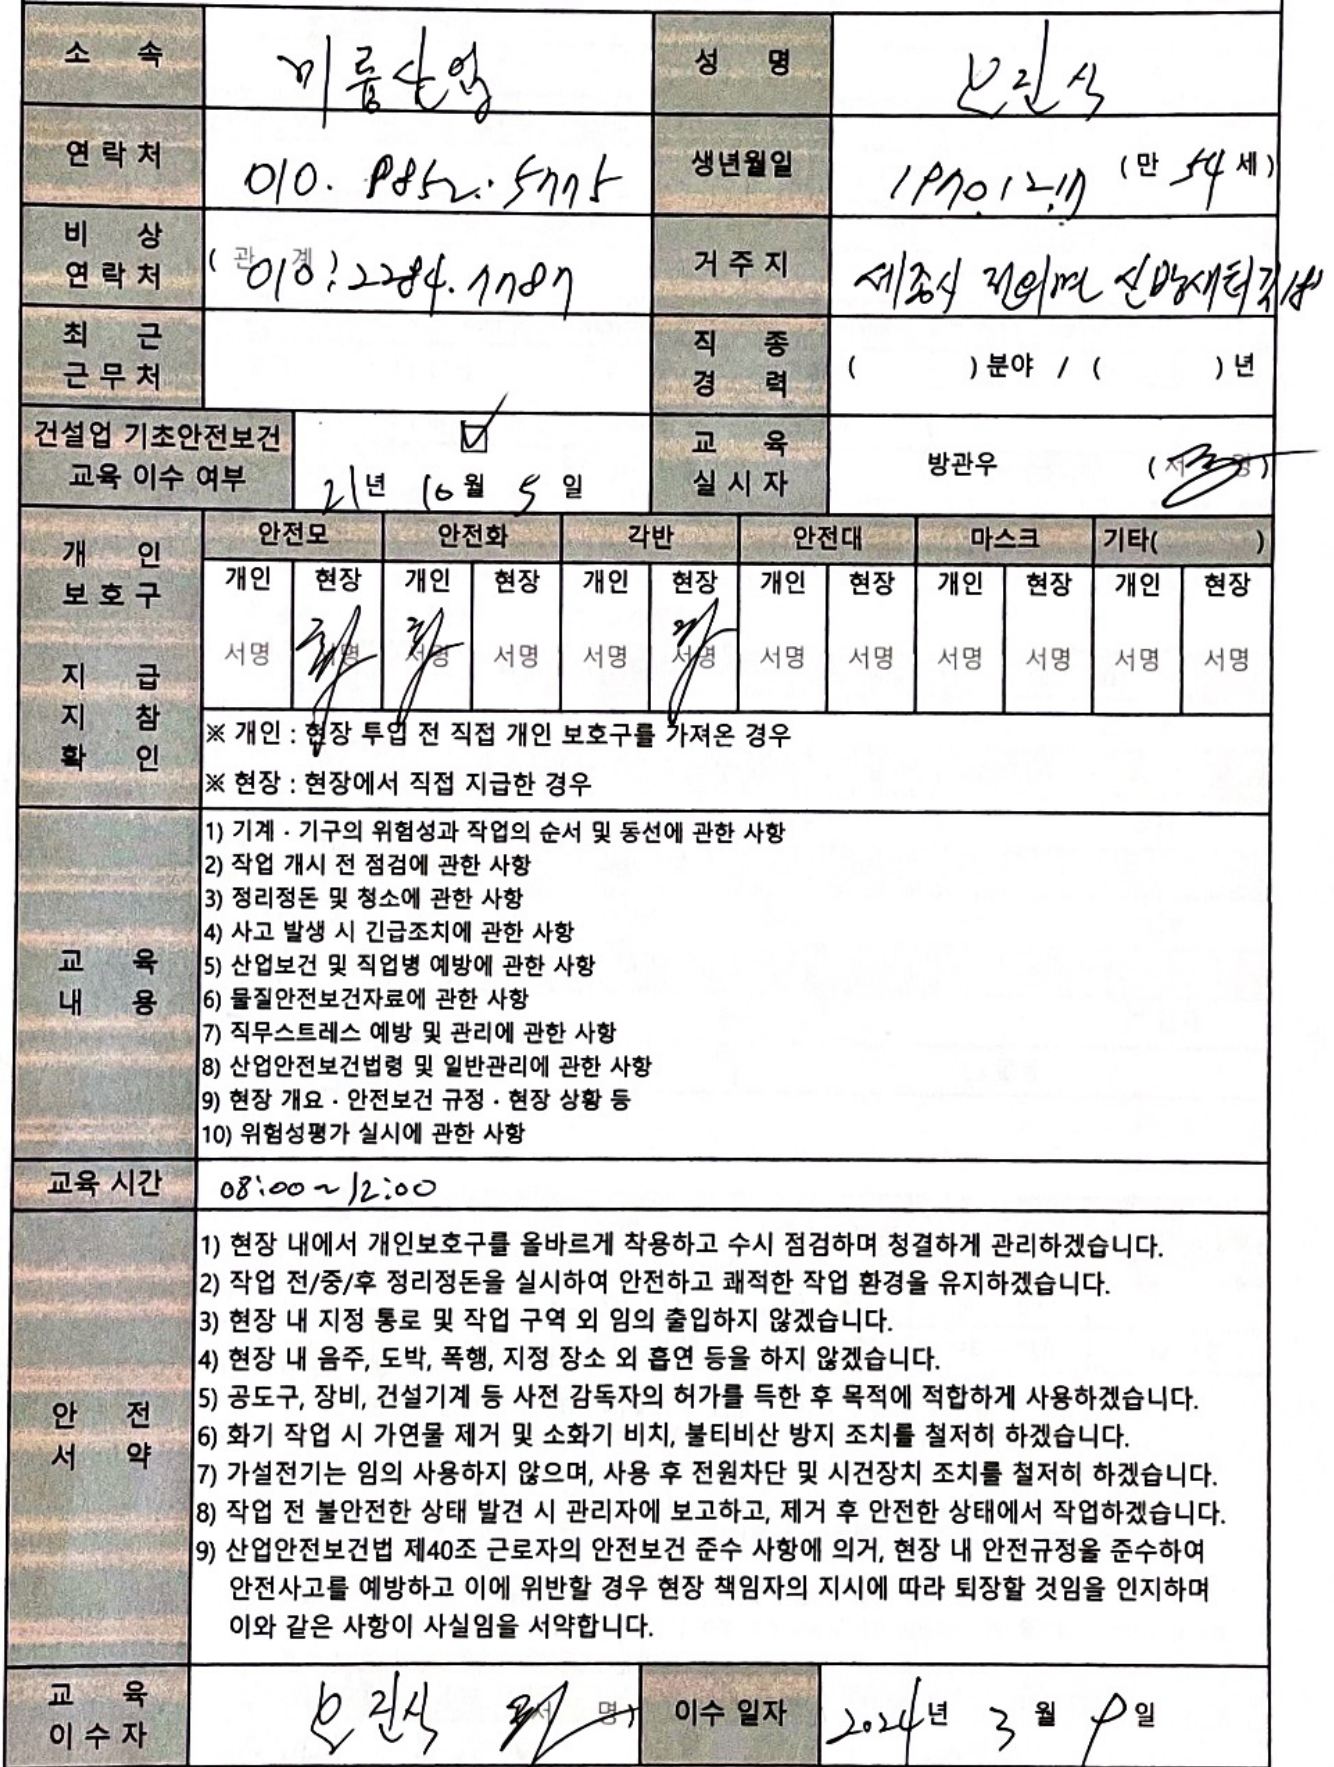 소 속 미룸산업 성 명
연락처 010. 8852. 5775 생년월일 1970.12.17 (만 54 세)
비 상 연락처 (관 계 010. 2284. 7787 거주지 세종시 전의면 신방새터길
최 근 근무처 직 종 경 력 ( )분야 / ( )년
건설업 기초안전보건 교육 이수 여부 21년 10월 5일 교 육 실시자 방관우 (서 명)
개 인 보호구 지 급 지 참 확 인
안전모 안전화 각반 안전대 마스크 기타( )
개인 현장 개인 현장 개인 현장 개인 현장 개인 현장 개인 현장
서명 서명 서명 서명 서명 서명 서명 서명 서명 서명 서명 서명
※ 개인 : 현장 투입 전 직접 개인 보호구를 가져온 경우
※ 현장 : 현장에서 직접 지급한 경우
교 육 내 용
1) 기계 · 기구의 위험성과 작업의 순서 및 동선에 관한 사항
2) 작업 개시 전 점검에 관한 사항
3) 정리정돈 및 청소에 관한 사항
4) 사고 발생 시 긴급조치에 관한 사항
5) 산업보건 및 직업병 예방에 관한 사항
6) 물질안전보건자료에 관한 사항
7) 직무스트레스 예방 및 관리에 관한 사항
8) 산업안전보건법령 및 일반관리에 관한 사항
9) 현장 개요 · 안전보건 규정 · 현장 상황 등
10) 위험성평가 실시에 관한 사항
교육 시간 08:00 ~ 12:00
안 전 서 약
1) 현장 내에서 개인보호구를 올바르게 착용하고 수시 점검하며 청결하게 관리하겠습니다.
2) 작업 전/중/후 정리정돈을 실시하여 안전하고 쾌적한 작업 환경을 유지하겠습니다.
3) 현장 내 지정 통로 및 작업 구역 외 임의 출입하지 않겠습니다.
4) 현장 내 음주, 도박, 폭행, 지정 장소 외 흡연 등을 하지 않겠습니다.
5) 공도구, 장비, 건설기계 등 사전 감독자의 허가를 득한 후 목적에 적합하게 사용하겠습니다.
6) 화기 작업 시 가연물 제거 및 소화기 비치, 불티비산 방지 조치를 철저히 하겠습니다.
7) 가설전기는 임의 사용하지 않으며, 사용 후 전원차단 및 시건장치 조치를 철저히 하겠습니다.
8) 작업 전 불안전한 상태 발견 시 관리자에 보고하고, 제거 후 안전한 상태에서 작업하겠습니다.
9) 산업안전보건법 제40조 근로자의 안전보건 준수 사항에 의거, 현장 내 안전규정을 준수하여
안전사고를 예방하고 이에 위반할 경우 현장 책임자의 지시에 따라 퇴장할 것임을 인지하며
이와 같은 사항이 사실임을 서약합니다.
교 육 이수자 서 명) 이수 일자 2024년 3월 9일